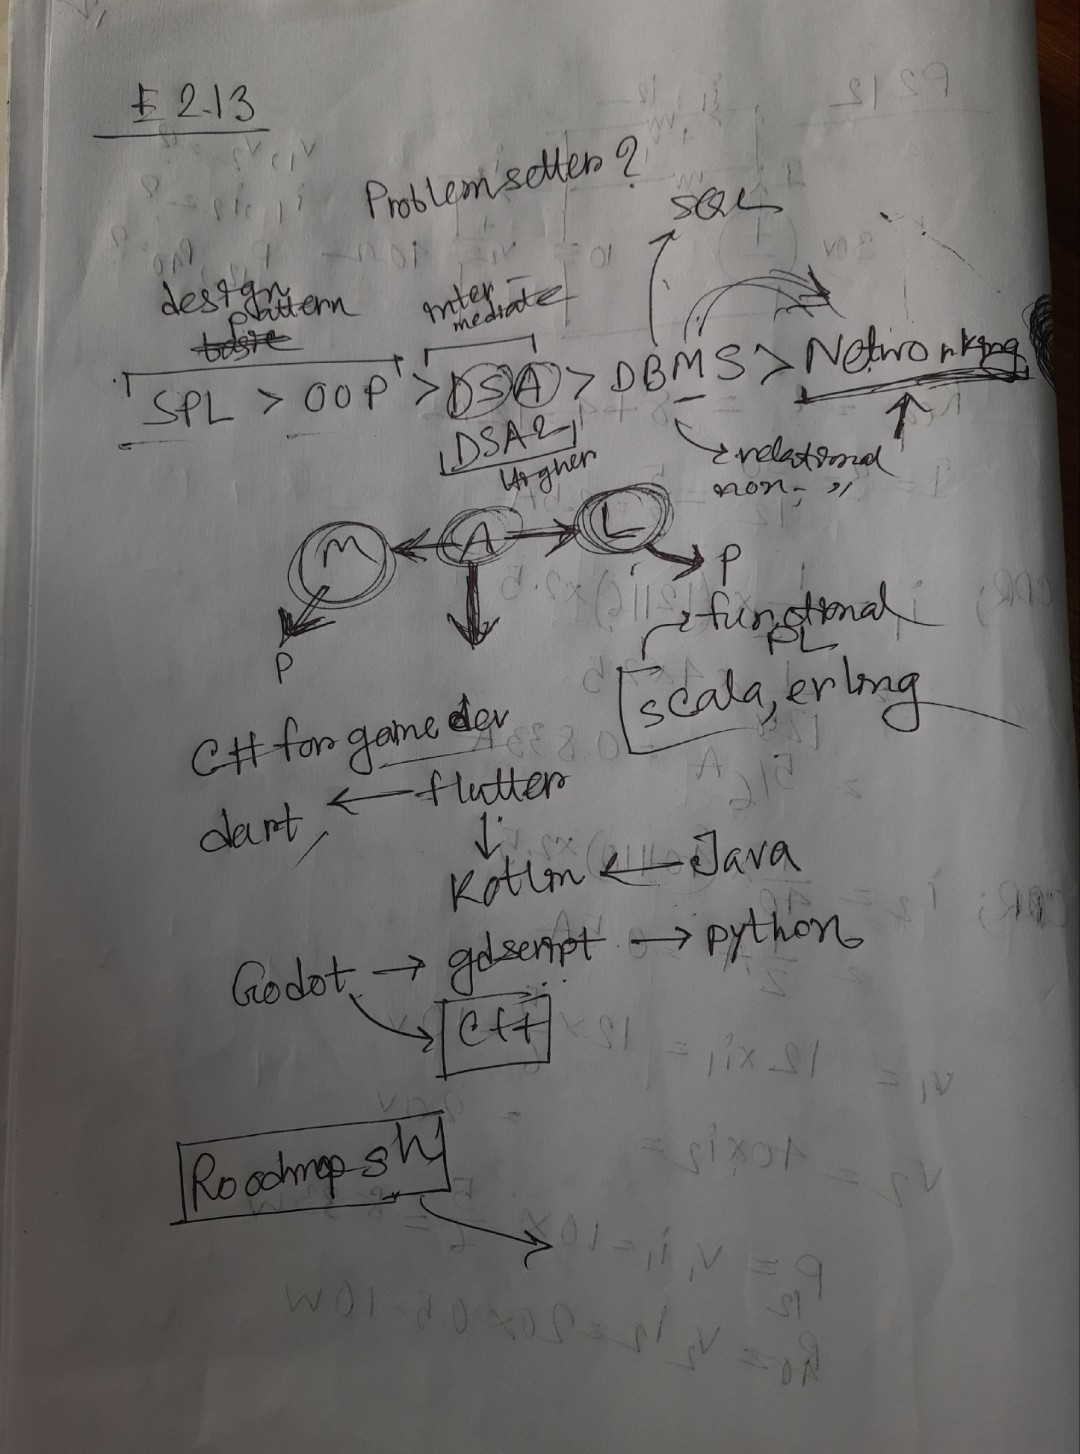 E 2.13
Problem setter ?
SQL
design
pattern
basic
inter
mediate
SPL > OOP > DSA > DBMS > Networking
DSA2
Higher
relational
non- "
M A L
P
P
functional
PL
scala, erling
C# for game dev
dart, ← flutter
↓
Kotlin ← Java
Godot → gdscript → python
C++
Roadmap sh